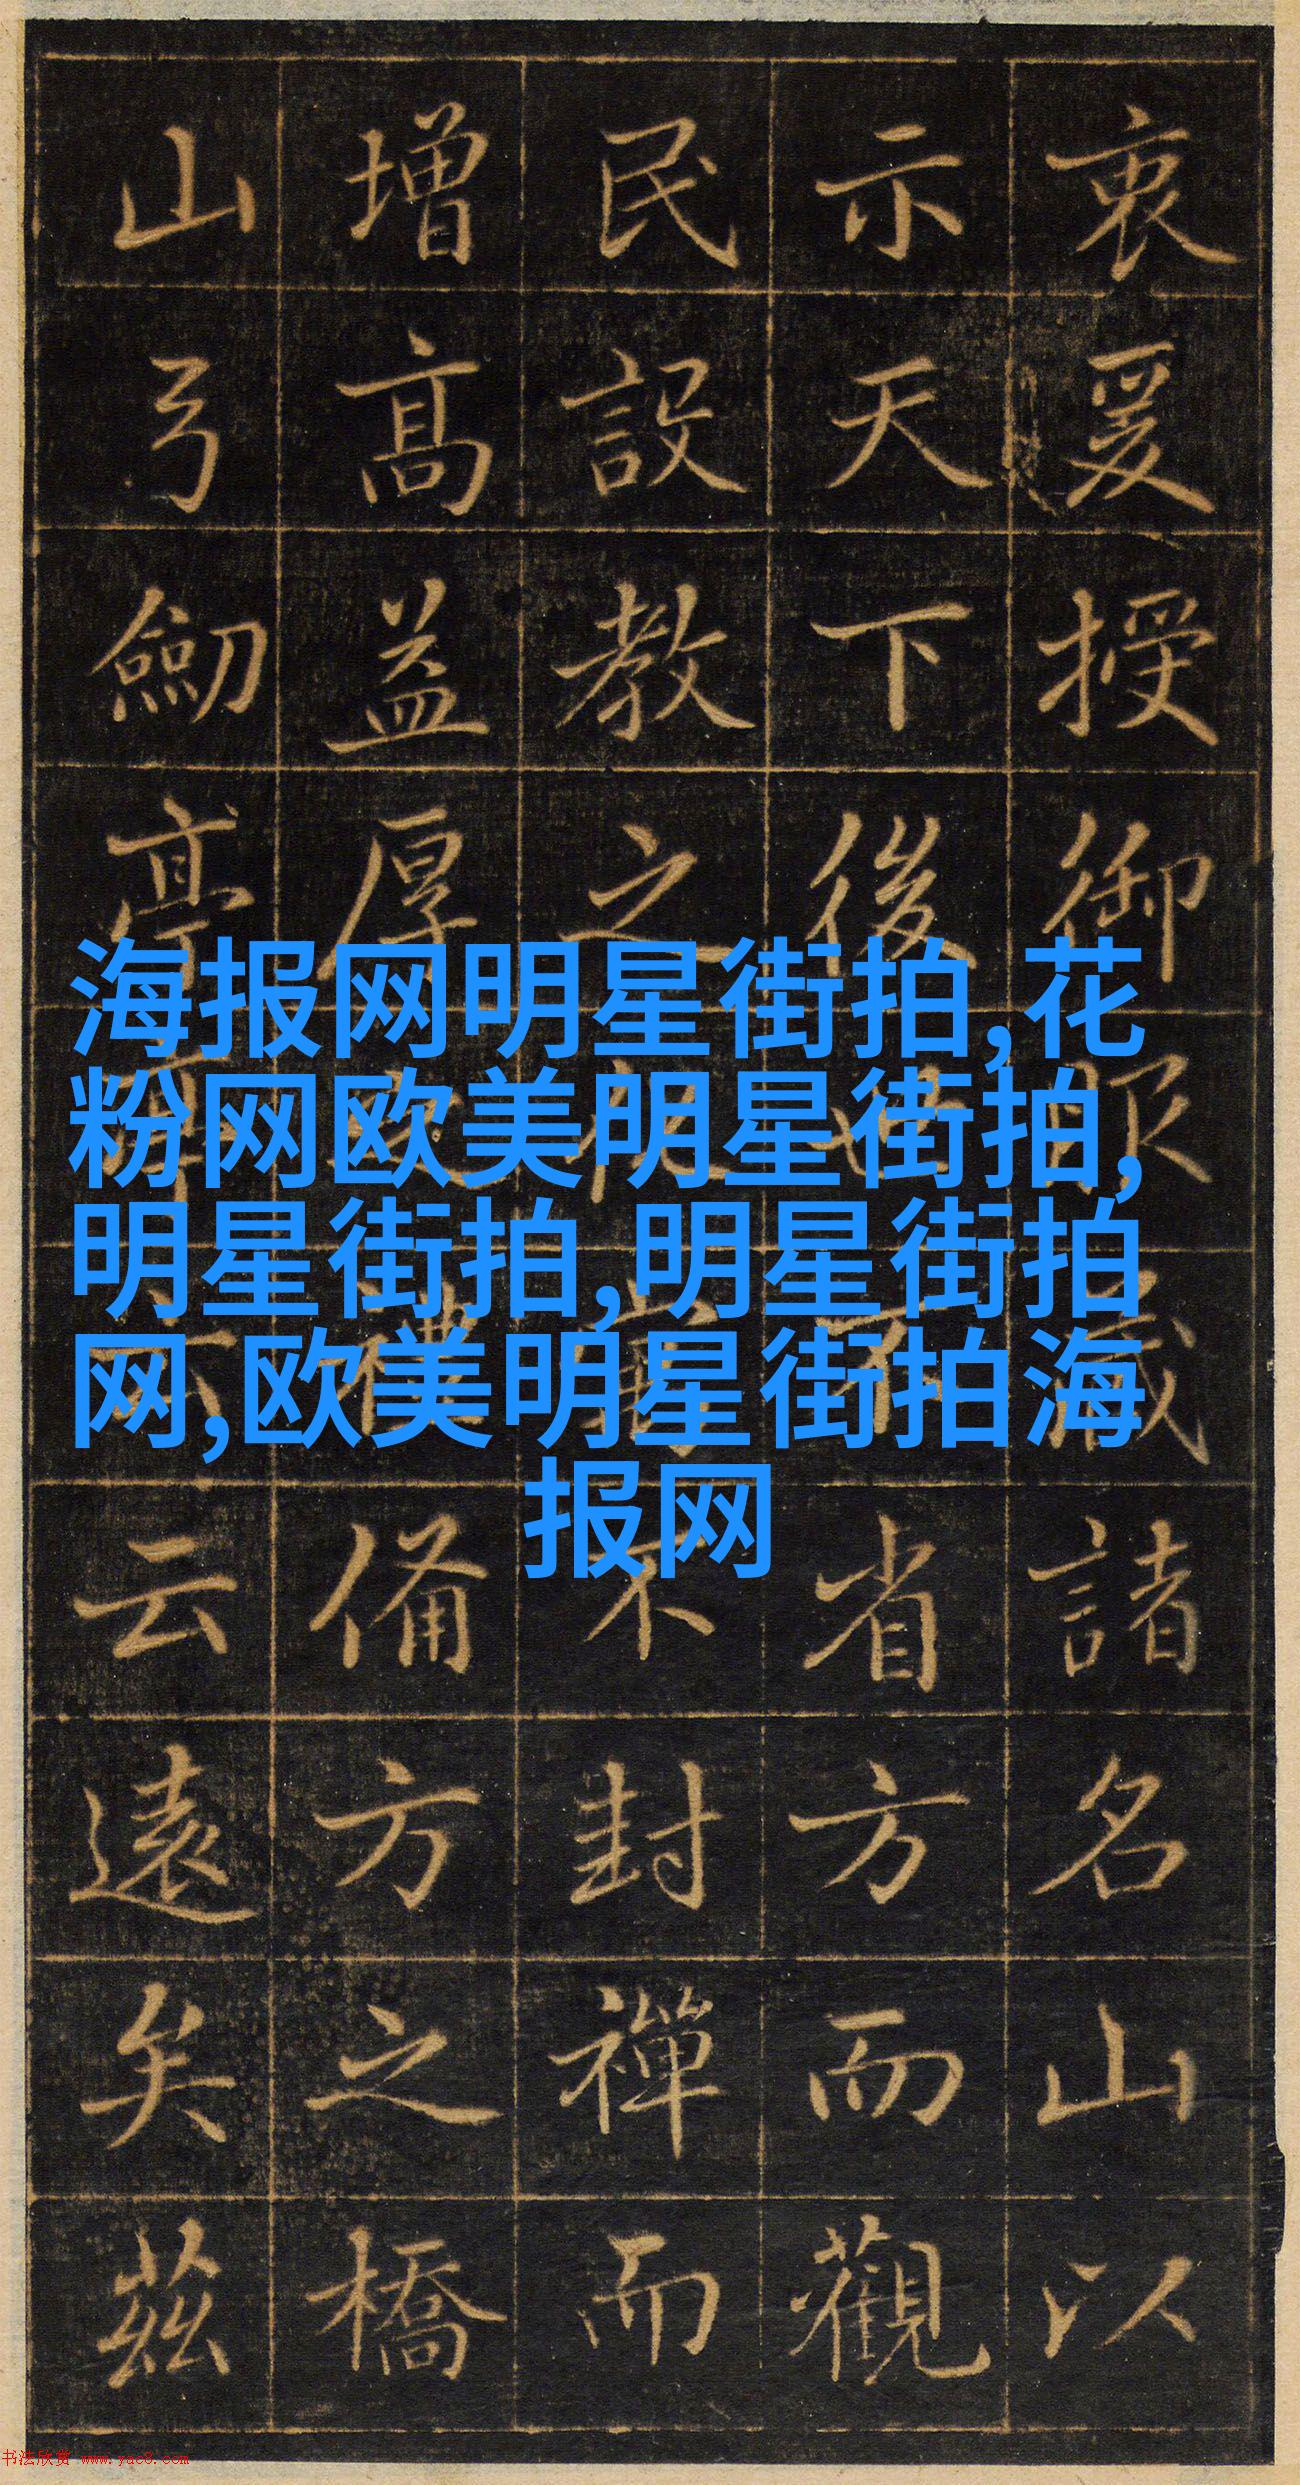 衷爰授御服
諸名山以
示天下後
省方而觀
民設教之
不封禪而
增高益厚
備方之橋
山弓劒亭
云遠矣茲
海报网明星街拍,花
粉网欧美明星街拍,
明星街拍,明星街拍
网,欧美明星街拍海
报网
书法欣赏 www.yac8.com